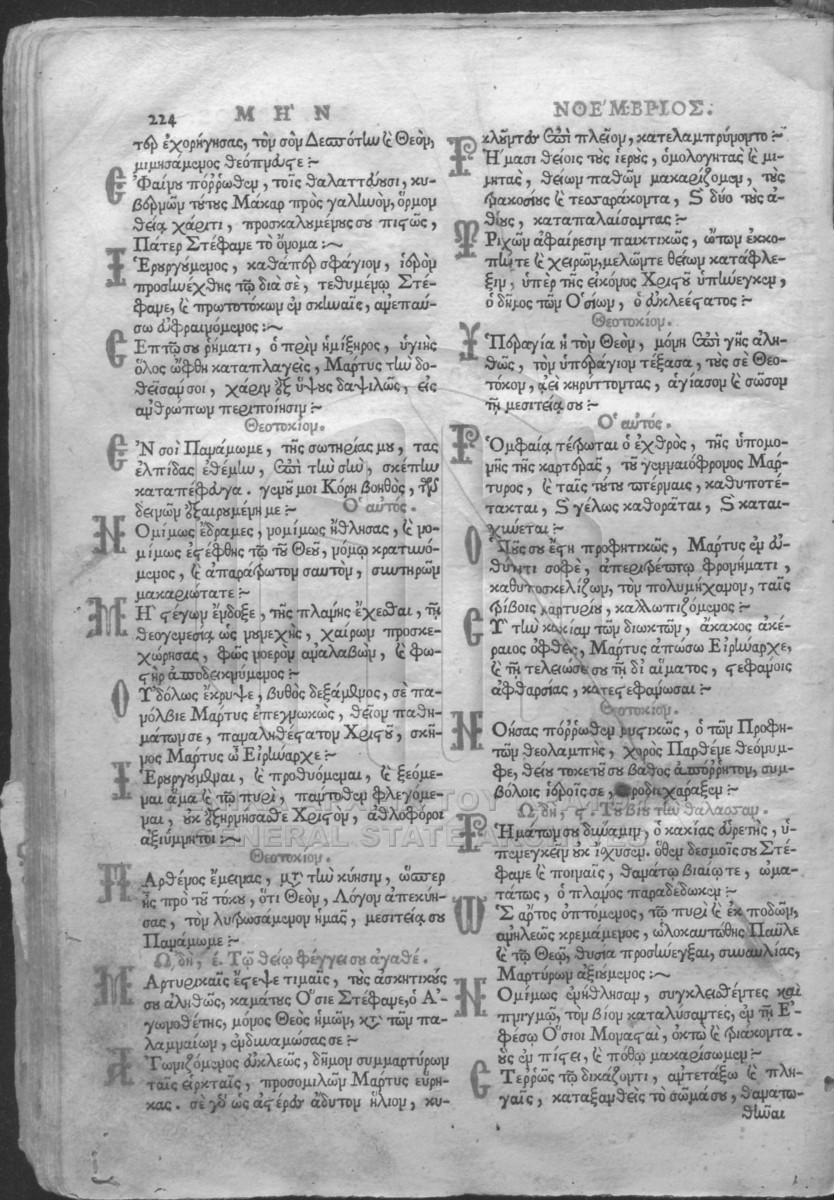 224 ΜΗ´Ν
τὸν ἐχορήγησας, τὸν σὸν Δεσπότην καὶ Θεὸν,
μιμησάμενος θεόπνευστε :~
ἘΦαίνου πόῤῥωθεν, τοῖς θαλαττεύουσι, κυ-
βερνῶν τούτους Μάκαρ πρὸς γαλήνὸν, ὅρμον
θείᾳ χάριτι, προσκαλουμένους σου πιστῶς,
Πάτερ Στέφανε τὸ ὄνομα :~
ἹΕρουργούμενος, καθάπερ σφάγιον, ἱερὸν
προσηνέχθης τῷ διὰ σὲ, τεθυμένῳ Στέ-
φανε, καὶ πρωτοτόκων ἐν σκηναῖς, ἀνεπαύ-
σω εὐφραινόμενος :~
ἘΕπτῷ σου ῥήματι, ὁ πρὶν ἡμίξηρος, ὑγιὴς
ὅλος ὤφθη καταπλαγεὶς, Μάρτυς τὴν δο-
θεῖσάν σοι, χάριν ἐξ ὕψους δαψιλῶς, εἰς
ἀνθρώπων περιποίησιν :~
Θεοτοκίον.
ἘΝ σοὶ Πανάμωμε, τῆς σωτηρίας μου, τὰς
ἐλπίδας ἐθέμην, ἐπὶ τὴν σὴν, σκέπην
καταπέφευγα. γενοῦ μοι Κόρη βοηθὸς, τῶν
δεινῶν ἐξαιρουμένη με :~ Ὁ αὐτός.
ΝΟμίμως ἔδραμες, νομίμως ἤθλησας, καὶ νο-
μίμως ἐστέφθης τῷ τοῦ Θεοῦ, νόμῳ κρατυνό-
μενος, καὶ ἀπαράφθτον σαυτὸν, συντηρῶν
μακαριώτατε :~
ΜΗ` στέγων ἔνδοξε, τῆς πλάνης ἔχεσθαι, τῇ
θεογενεσίᾳ ὡς νουνεχὴς, χαίρων προσκε-
χώρηκας, φῶς νοερὸν ἀναλαβὼν, καὶ φω-
στὴρ ἀποδεικνύμενος :~
ΟΥ᾿δόλως ἔκρυψε, βυθὸς δεξάμενος, σὲ πα-
νόλβιε Μάρτυς ἐπεγνωκὼς, θεῖον παθη-
μάτων σε, παναληθέστατον Χριστοῦ, σκῆ-
νος Μάρτυς ὦ Εἰρήναρχε :~
ἹΕρουργούμεναι, καὶ προθυόμεναι, καὶ ξεόμε-
ναι ἅμα καὶ τῷ πυρὶ, παντόθεν φλεγόμε-
ναι, οὐκ ἐξηρνήσασθε Χριστὸν, ἀθλοφόροι
ἀξιύμνητοι :~
Θεοτοκίον.
ΠΑρθένος ἔμεινας, μετὰ τὴν κύησιν, ὥσπερ
ἦς πρὸ τοῦ τόκου, ὅτι Θεὸν, Λόγον ἀπεκύη-
σας, τὸν λυτρωσάμενον ἡμᾶς, μεσιτείᾳ σου
Πανάμωμε :~
Ὠδὴ, έ. Τῷ θείῳ φέγγει σου ἀγαθέ.
ΜΑρτυρικαῖς ἔστεψε τιμαῖς, τοὺς ἀσκητικούς
σου ἀληθῶς, καμάτους Ὅσιε Στέφανε, ὁ Ἀ-
γωνοθέτης, μόνος Θεὸς ἡμῶν, κατὰ τῶν πα-
λαμναίων, ἐνδυναμώσας σε :~
ἈΓωνιζόμενος εὐκλεῶς, δῆμον συμμαρτύρων
ταῖς εἱρκταῖς, προσομιλῶν Μάρτυς εὕρη-
κας. σὲ γὰρ ὡς ἀστέρων ἄδυτον ἥλιον, κυ-
ΝΟΕ´ΜΒΡΙΟΣ.
κλούντων ἐπὶ πλεῖον, κατελαμπρύνοντο :~
ῬΗ´μασι θείοις τοὺς ἱεροὺς, ὁμολογητὰς καὶ μι-
μητὰς, θείων παθῶν μακαρίζομεν, τοὺς
τριακοσίους καὶ τεσσαράκοντα, καὶ δύο τοὺς ἀ-
θέους, καταπαλαίσαντας :~
ΤΡιχῶν ἀφαίρεσιν παικτικῶς, ὤτων ἐκκο-
πήν τε καὶ χειρῶν, μελῶν τε θείων κατάφλε-
ξιν, ὑπὲρ τῆς εἰκόνος Χριστοῦ ὑπήνεγκεν,
ὁ δῆμος τῶν Ὁσίων, ὁ εὐκλεέστατος :~
Θεοτοκίον.
ὙΠεραγία ἡ τὸν Θεὸν, μόνη ἐπὶ γῆς ἀλη-
θῶς, τὸν ὑπεράγιον τέξασα, τοὺς σὲ Θεο-
τόκον, ἀεὶ κηρύττοντας, ἁγίασον καὶ σῶσον
τῇ μεσιτείᾳ σου :~
Ὁ αὐτός.
ῬΟμφαίᾳ τέτρωται ὁ ἐχθρὸς, τῆς ὑπομο-
νῆς τῆς καρτερᾶς, τοῦ γενναιόφρονος Μάρ-
τυρος, καὶ ταῖς τούτου πτέρναις, καθυποτέ-
τακται, καὶ γέλως καθορᾶται, καὶ καται-
σχύνεται :~
ὉΠούς σου ἔστη προφητικῶς, Μάρτυς ἐν εὐ-
θύτητι σοφὲ, ἀπεριτρέπτῳ φρονήματι,
καθυποσκελίζων, τὸν πολυμήχανον, ταῖς
τρίβοις μαρτυρίου, καλλωπιζόμενος :~
ἘΥ῾ τὴν κακίαν τῶν διωκτῶν, ἄκακος ἀκέ-
ραιος ὀφθεὶς, Μάρτυς ἀπώσω Εἰρήναρχε,
καὶ τῇ τελειώσει σου τῇ δι᾿ αἵματος, στεφάνοις
ἀφθαρσίας, κατεστεφάνωσαι :~
Θεοτοκίον.
ΝΟήσας πόῤῥωθεν μυστικῶς, ὁ τῶν Προφη-
τῶν θεολαμπὴς, χορὸς Παρθένε θεόνυμ-
φε, θείου τοκετοῦ σου βάθος ἀπόῤῥητον, συμ-
βόλοις ἱεροῖς σε, προδιεχάραξεν :~
Ὠδὴ, ς. Τοῦ βίου τὴν θάλασσαν.
ῬΗμάτων σου δύναμιν, ὁ κακίας εὑρετὴς, ὑ-
πενεγκεῖν οὐκ ἴσχυσεν. ὅθεν δεσμοῖς σου Στέ-
φανε καὶ ποιναῖς, θανάτῳ βιαίῳ τε, ὠμο-
τάτως, ὁ πλάνος παραδέδωκεν :~
ὩΣ ἄρτος ὀπτόμενος, τῷ πυρὶ καὶ ἐκ ποδῶν,
ἀνηλεῶς κρεμάμενος, ὡλοκαυτώθης Παῦλε
καὶ τῷ Θεῷ, θυσία προσήνεγξαι, συναυλίας,
Μαρτύρων ἀξιούμενος :~
ΝΟμίμως ἐνήθλησαν, συγκλεισθέντες καὶ
πνιγμῷ, τὸν βίον καταλύσαντες, ἐν τῇ Ἐ-
φέσῳ Ὅσιοι Μονασταὶ, ὀκτὼ καὶ τριάκοντα.
οὓς ἐν πίστει, καὶ πόθῳ μακαρίσωμεν :~
ΣΤεῤῥῶς τῷ δικάζοντι, ἀντετάξω καὶ πλη-
γαῖς, καταξανθεὶς τὸ σῶμά σου, θανατω-
θῆναι
ΓΕΝΙΚΑ ΑΡΧΕΙΑ ΤΟΥ ΚΡΑΤΟΥΣ
GENERAL STATE ARCHIVES